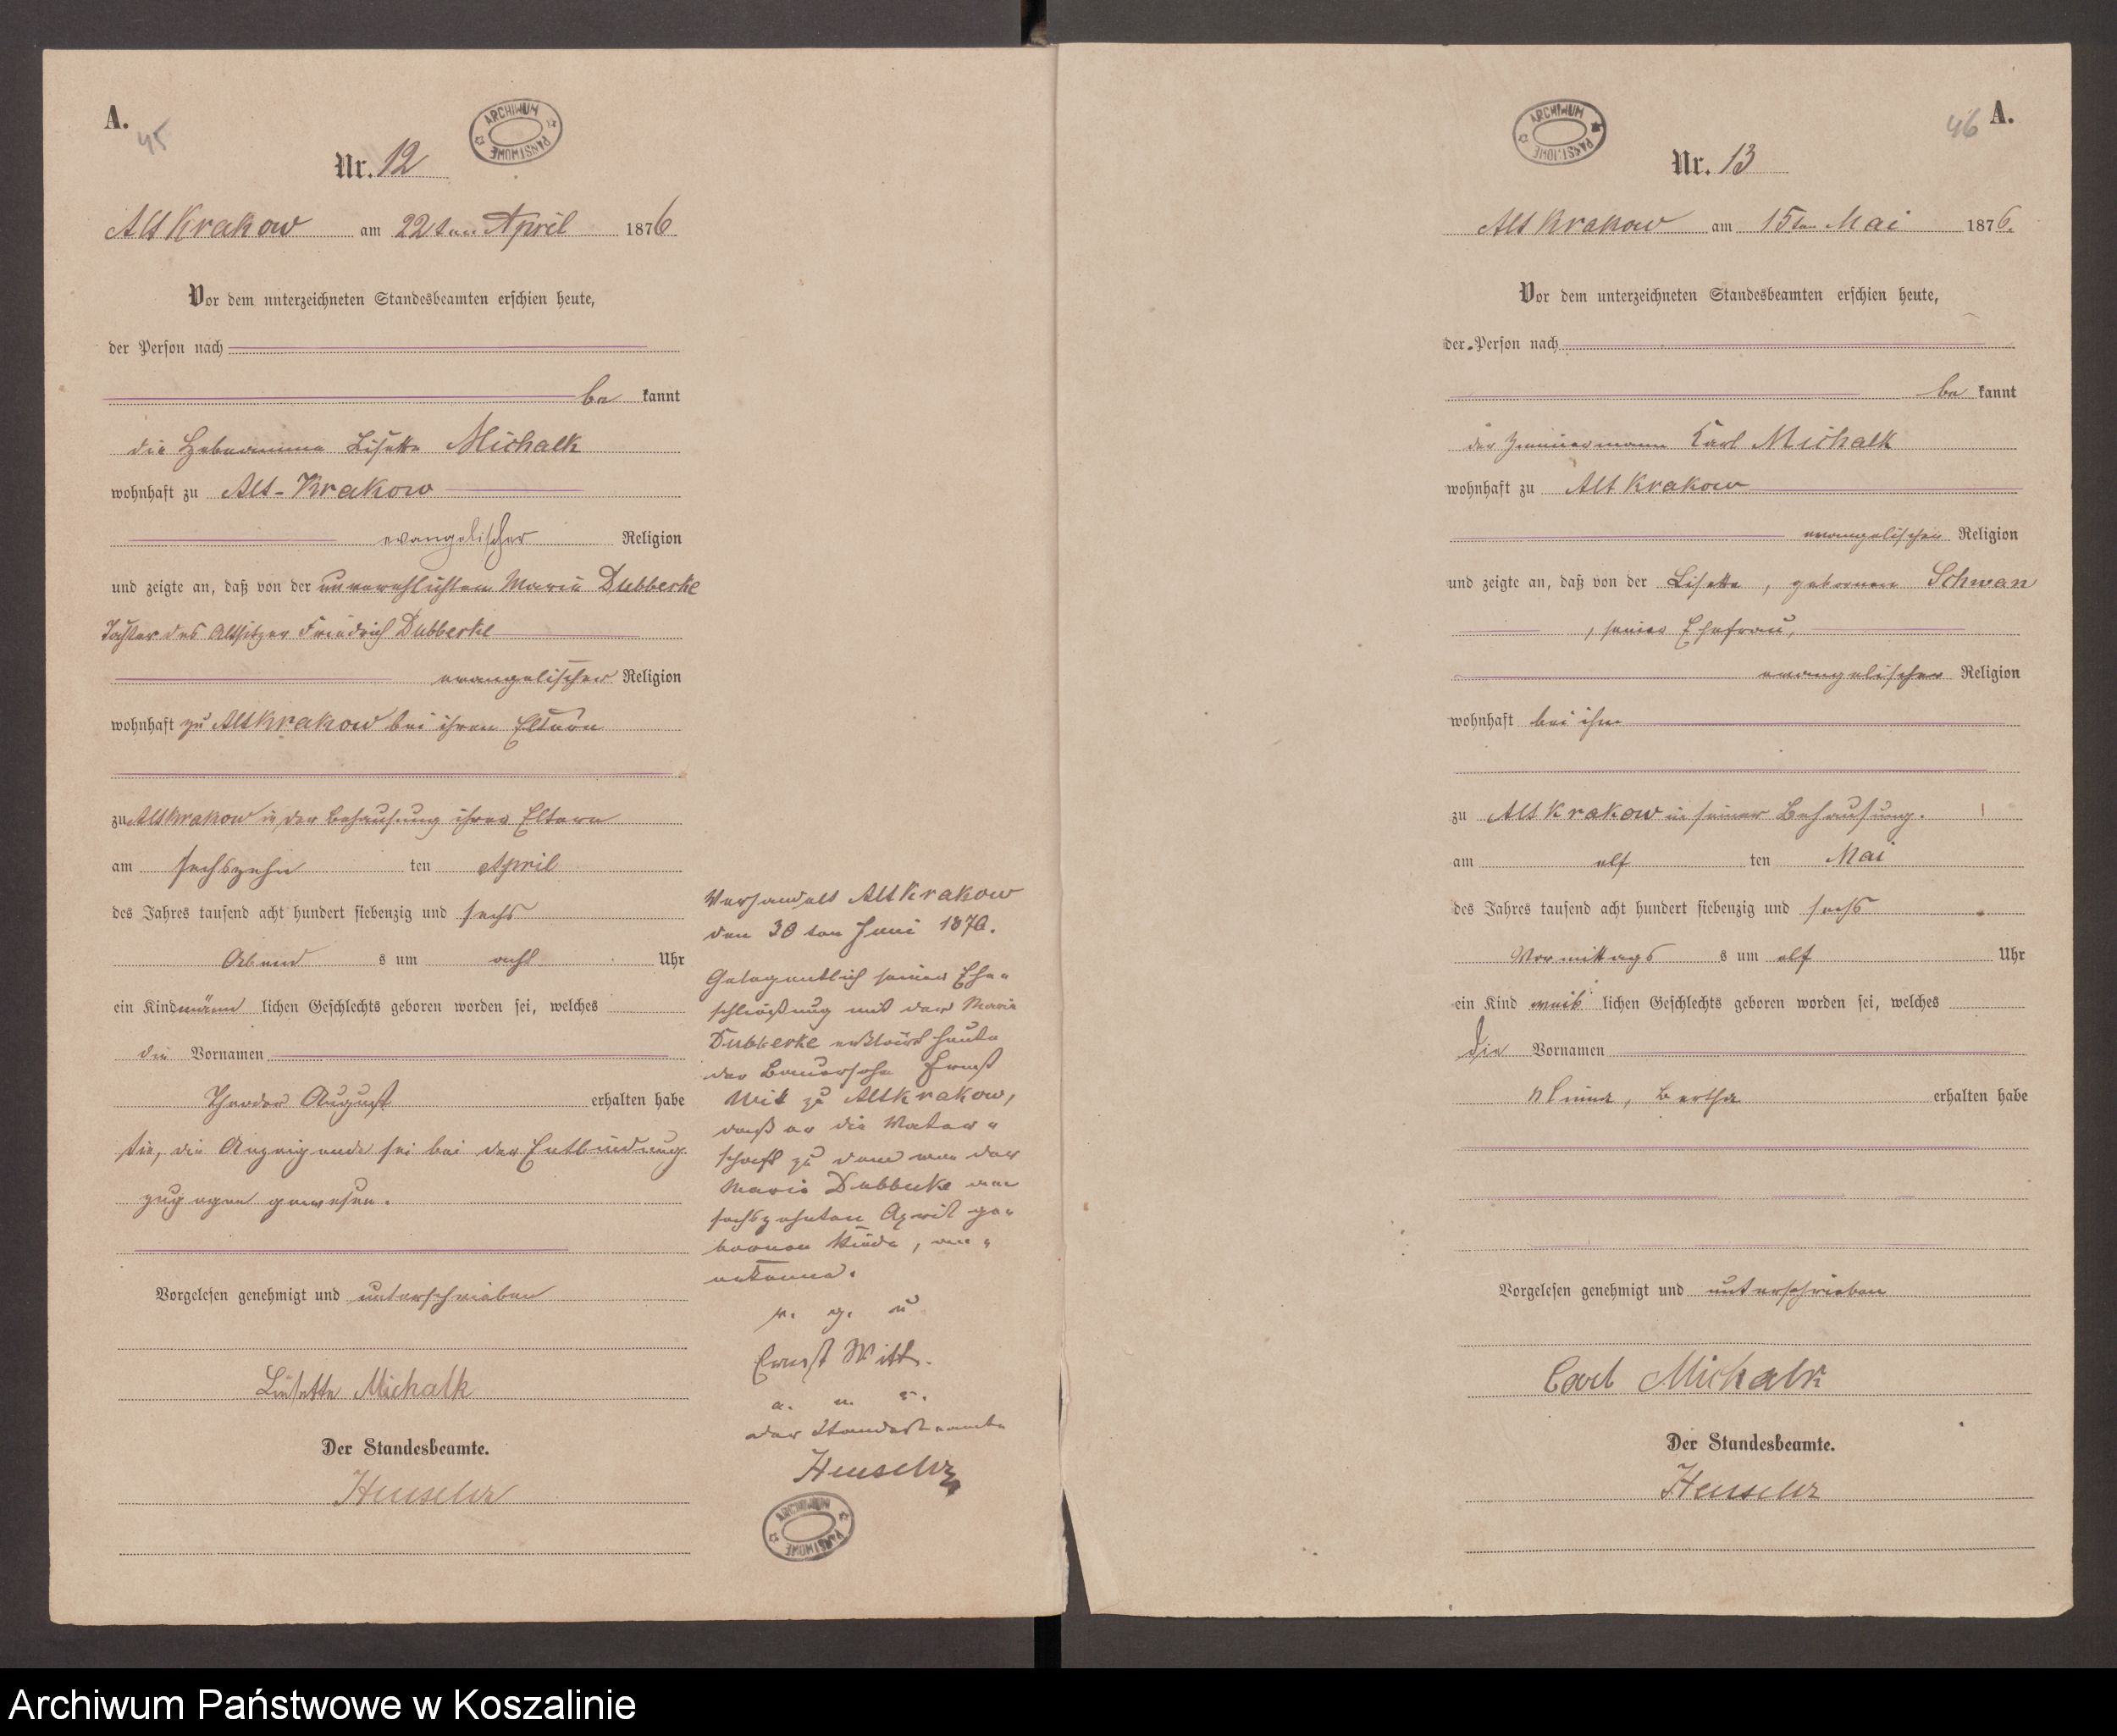 A.
45
ARCHIWUM PAŃSTWOWE
Nr. 12
Alt Krakow am 22ten April 1876
Vor dem unterzeichneten Standesbeamten erschien heute,
der Person nach
be kannt
die Hebeamme Lisette Michalk
wohnhaft zu Alt-Krakow
evangelischer Religion
und zeigte an, daß von der unverehlichten Marie Dubberke
Tochter des Altsitzer Friedrich Dubberke
evangelischer Religion
wohnhaft zu Altkrakow bei ihren Eltern
zu Altkrakow in der Behausung ihrer Eltern
am sechszehn ten April
des Jahres tausend acht hundert siebenzig und sechs
Abend s um acht Uhr
ein Kind männ lichen Geschlechts geboren worden sei, welches
die Vornamen
Theodor August erhalten habe
Sie, die Anzeigende sei bei der Entbindung
zugegen gewesen.
Vorgelesen genehmigt und unterschrieben
Lisette Michalk
Der Standesbeamte.
Verhandelt Altkrakow
den 30ten Juni 1876.
Gelegentlich seiner Ehe„
schließung mit der Marie
Dubberke erklärt heute
der Bauersohn Ernst
Witt zu Altkrakow,
daß er die Vater„
schaft zu dem von der
Marie Dubberke am
sechszehnten April ge„
bornen Kinde, an„
erkenne.
v. g. u
Ernst Witt.
a. u. s.
der Standesbeamte
ARCHIWUM PAŃSTWOWE
ARCHIWUM PAŃSTWOWE
46 A.
Nr. 13
Alt Krakow am 15ten Mai 1876.
Vor dem unterzeichneten Standesbeamten erschien heute,
der Person nach
be kannt
der Zimmermann Karl Michalk
wohnhaft zu Alt Krakow
evangelischer Religion
und zeigte an, daß von der Lisette, gebornen Schwan
, seiner Ehefrau,
evangelischer Religion
wohnhaft bei ihm
zu Alt Krakow in seiner Behausung.
am elf ten Mai
des Jahres tausend acht hundert siebenzig und sechs
Vormittags s um elf Uhr
ein Kind weib lichen Geschlechts geboren worden sei, welches
die Vornamen
Bertha erhalten habe
Vorgelesen genehmigt und unterschrieben
Carl Michalk
Der Standesbeamte.
Archiwum Państwowe w Koszalinie